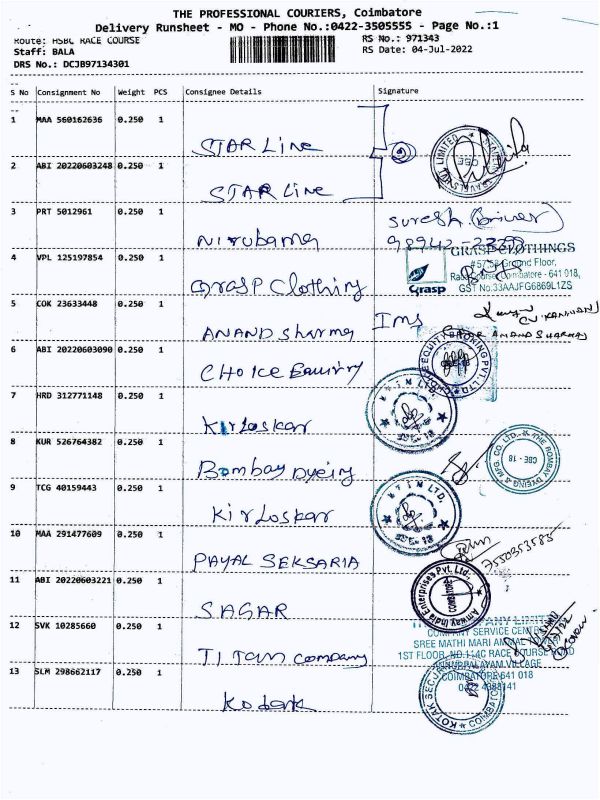 THE PROFESSIONAL COURIERS, Coimbatore
Delivery Runsheet - MO - Phone No.:0422-3505555 - Page No.:1
Route: HSBC RACE COURSE
RS No.: 971343
Staff: BALA
RS Date: 04-Jul-2022
DRS No.: DCJB97134301
S No Consignment No Weight PCS Consignee Details Signature
1 MAA 560162636 0.250 1
STAR Line
2 ABI 20220603248 0.250 1
STAR Line
3 PRT 5012961 0.250 1
Nirubama
Suresh (Driver)
4 VPL 125197854 0.250 1
Grasp Clothing
GRASP CLOTHINGS
Ground Floor,
Coimbatore - 641 018,
GST No:33AAJFG6869L1ZS
Grasp
5 COK 23633448 0.250 1
ANAND Sharma
ANAND SHARMA
6 ABI 20220603090 0.250 1
CHOICE Equity
EQUITY BROKING PVT. LTD
7 HRD 312771148 0.250 1
Kirloskar
8 KUR 526764382 0.250 1
Bombay Dyeing
THE BOMBAY DYEING & MFG CO. LTD.
CBE - 18
9 TCG 40159443 0.250 1
Kirloskar
10 MAA 291477609 0.250 1
PAYAL SEKSARIA
7550353585
11 ABI 20220603221 0.250 1
SAGAR
Amway India Enterprises Pvt. Ltd.,
12 SVK 10285660 0.250 1
TITAN Company
COMPANY SERVICE CENTRE
SREE MATHI MARI AMMAL
1ST FLOOR, NO.114C RACE COURSE ROAD
VILLAGE
COIMBATORE-641 018
13 SLM 298662117 0.250 1
Kodak
KOTAK SECURITIES
COIMBATORE